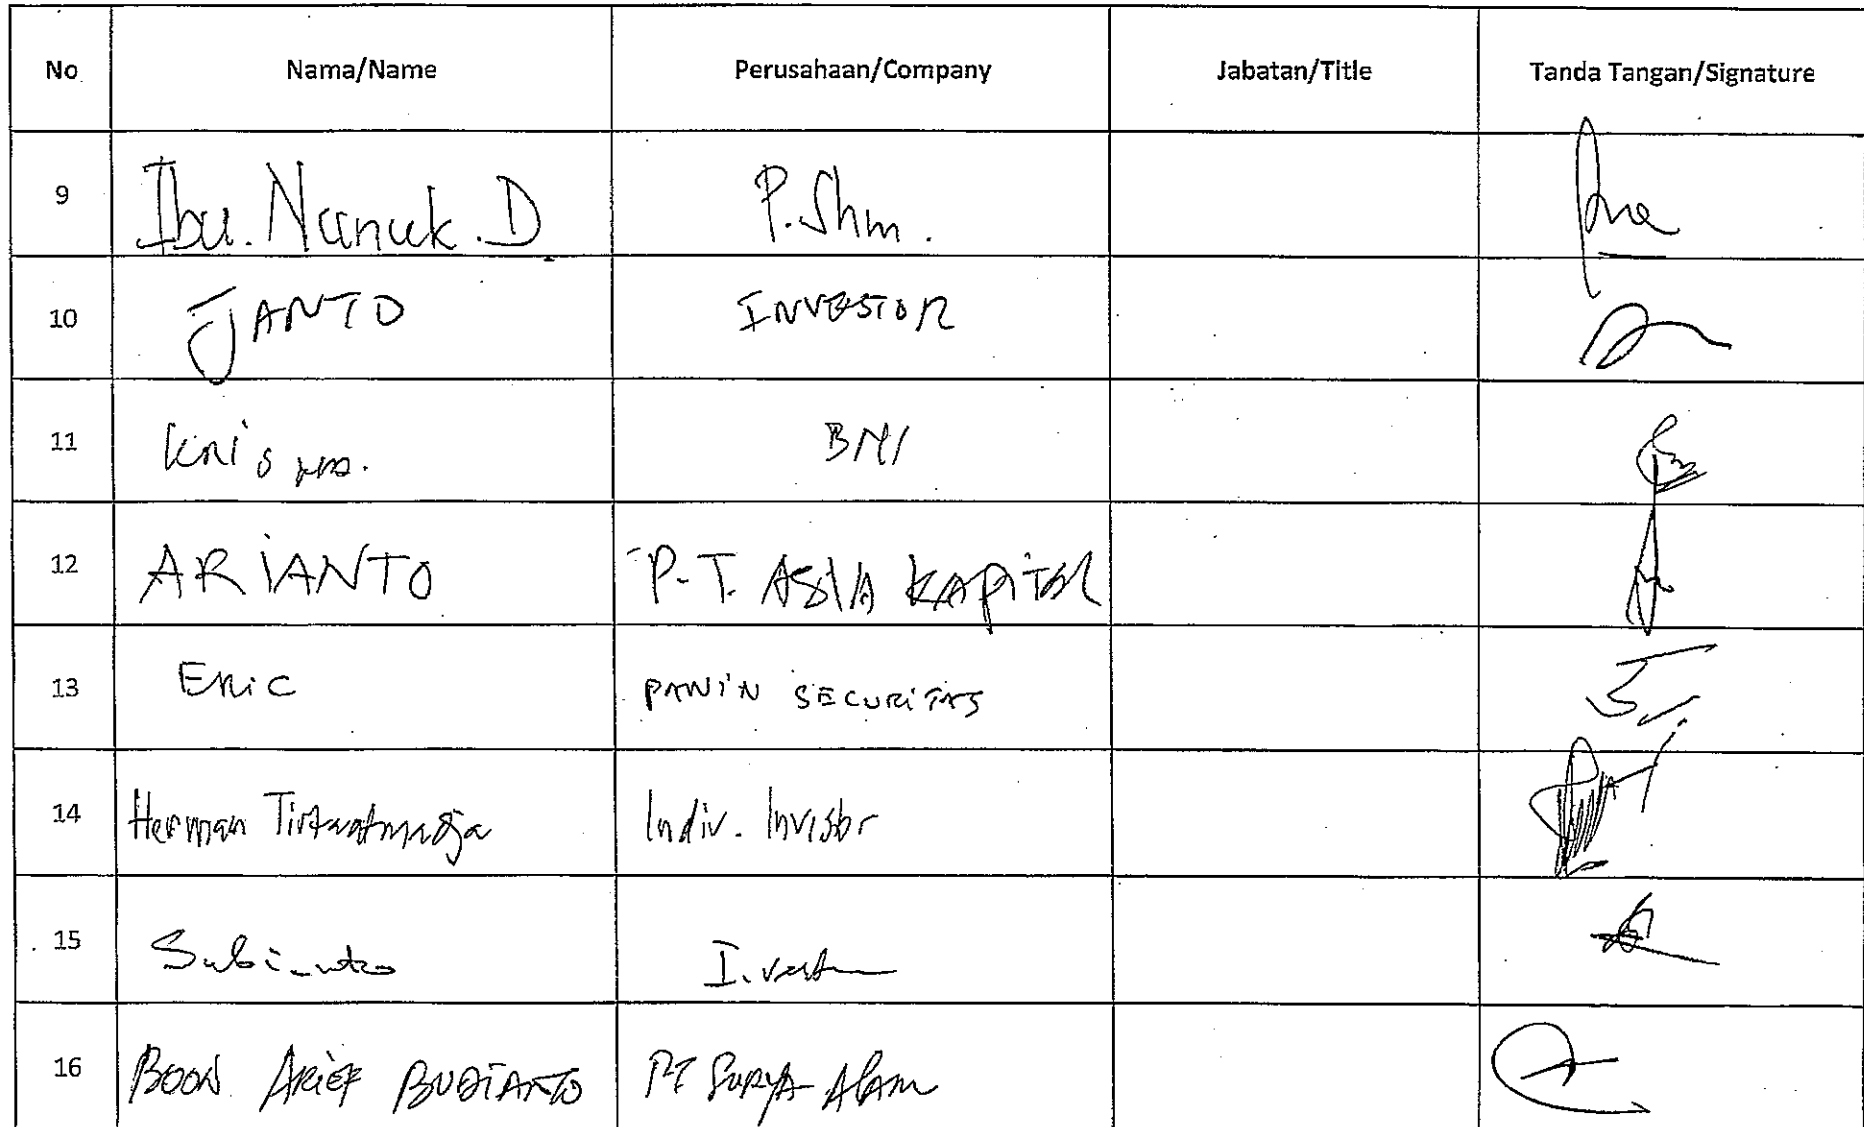 No Nama/Name Perusahaan/Company Jabatan/Title Tanda Tangan/Signature
9 Ibu. Nanuk. D P. Shm.
10 JANTO INVESTOR
11 BNI
12 ARIANTO P.T. ASIA KAPITAL
13 Eric PANIN SECURITAS
14 Herman Tirtaatmadja Indiv. Invistor
15 Subianto
16 BOON ARIEF BUDIANTO PT SURYA Alam